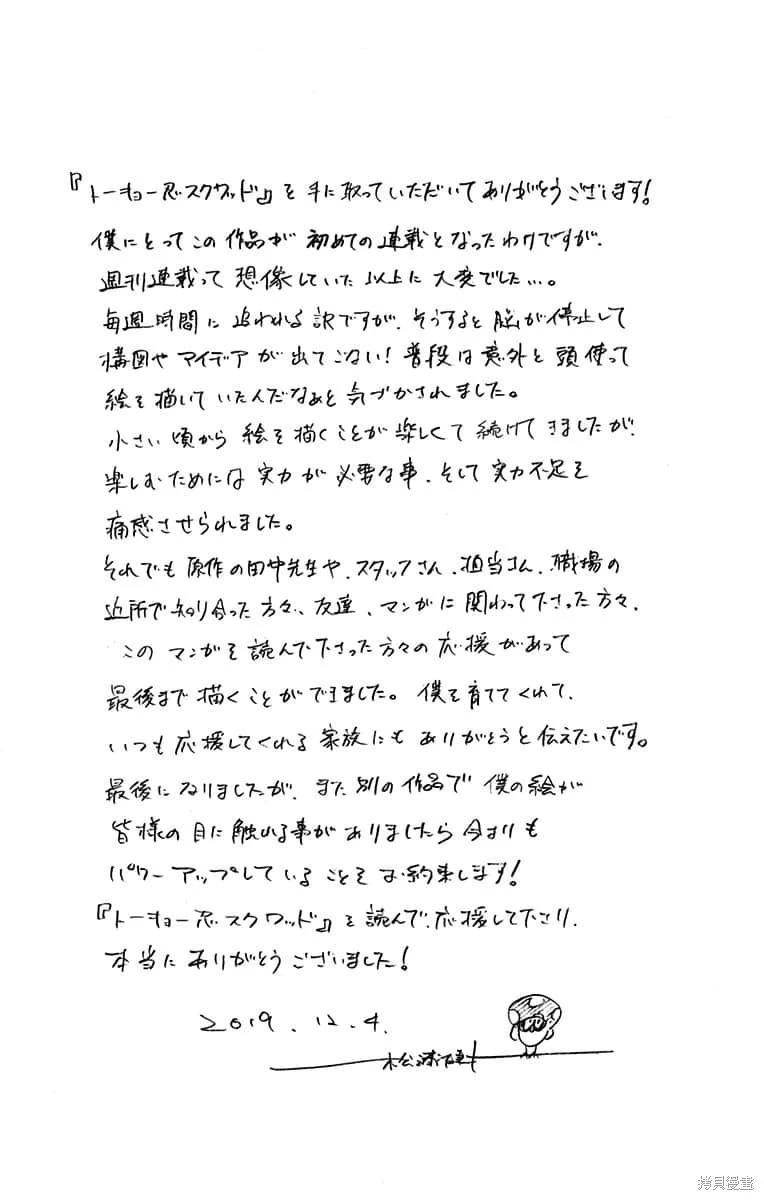 『トーキョー忍スクワッド』を手に取っていただいてありがとうございます!
僕にとってこの作品が初めての連載となったわけですが、
週刊連載って想像していた以上に大変でした…。
毎週時間に追われる訳ですが、そうすると脳が停止して
構図やアイデアが出てこない!普段は意外と頭使って
絵を描いていたんだなぁと気づかされました。
小さい頃から絵を描くことが楽しくて続けてきましたが、
楽しむためには実力が必要な事、そして実力不足を
痛感させられました。
それでも原作の田中先生や、スタッフさん、担当さん、職場の
近所で知り合った方々、友達、マンガに関わって下さった方々、
このマンガを読んで下さった方々の応援があって
最後まで描くことができました。僕を育ててくれて、
いつも応援してくれる家族にもありがとうと伝えたいです。
最後になりましたが、また別の作品で僕の絵が
皆様の目に触れる事がありましたら今よりも
パワーアップしていることをお約束します!
『トーキョー忍スクワッド』を読んで、応援して下さり、
本当にありがとうございました!
2019.12.4.
松浦健人
拷貝漫畫